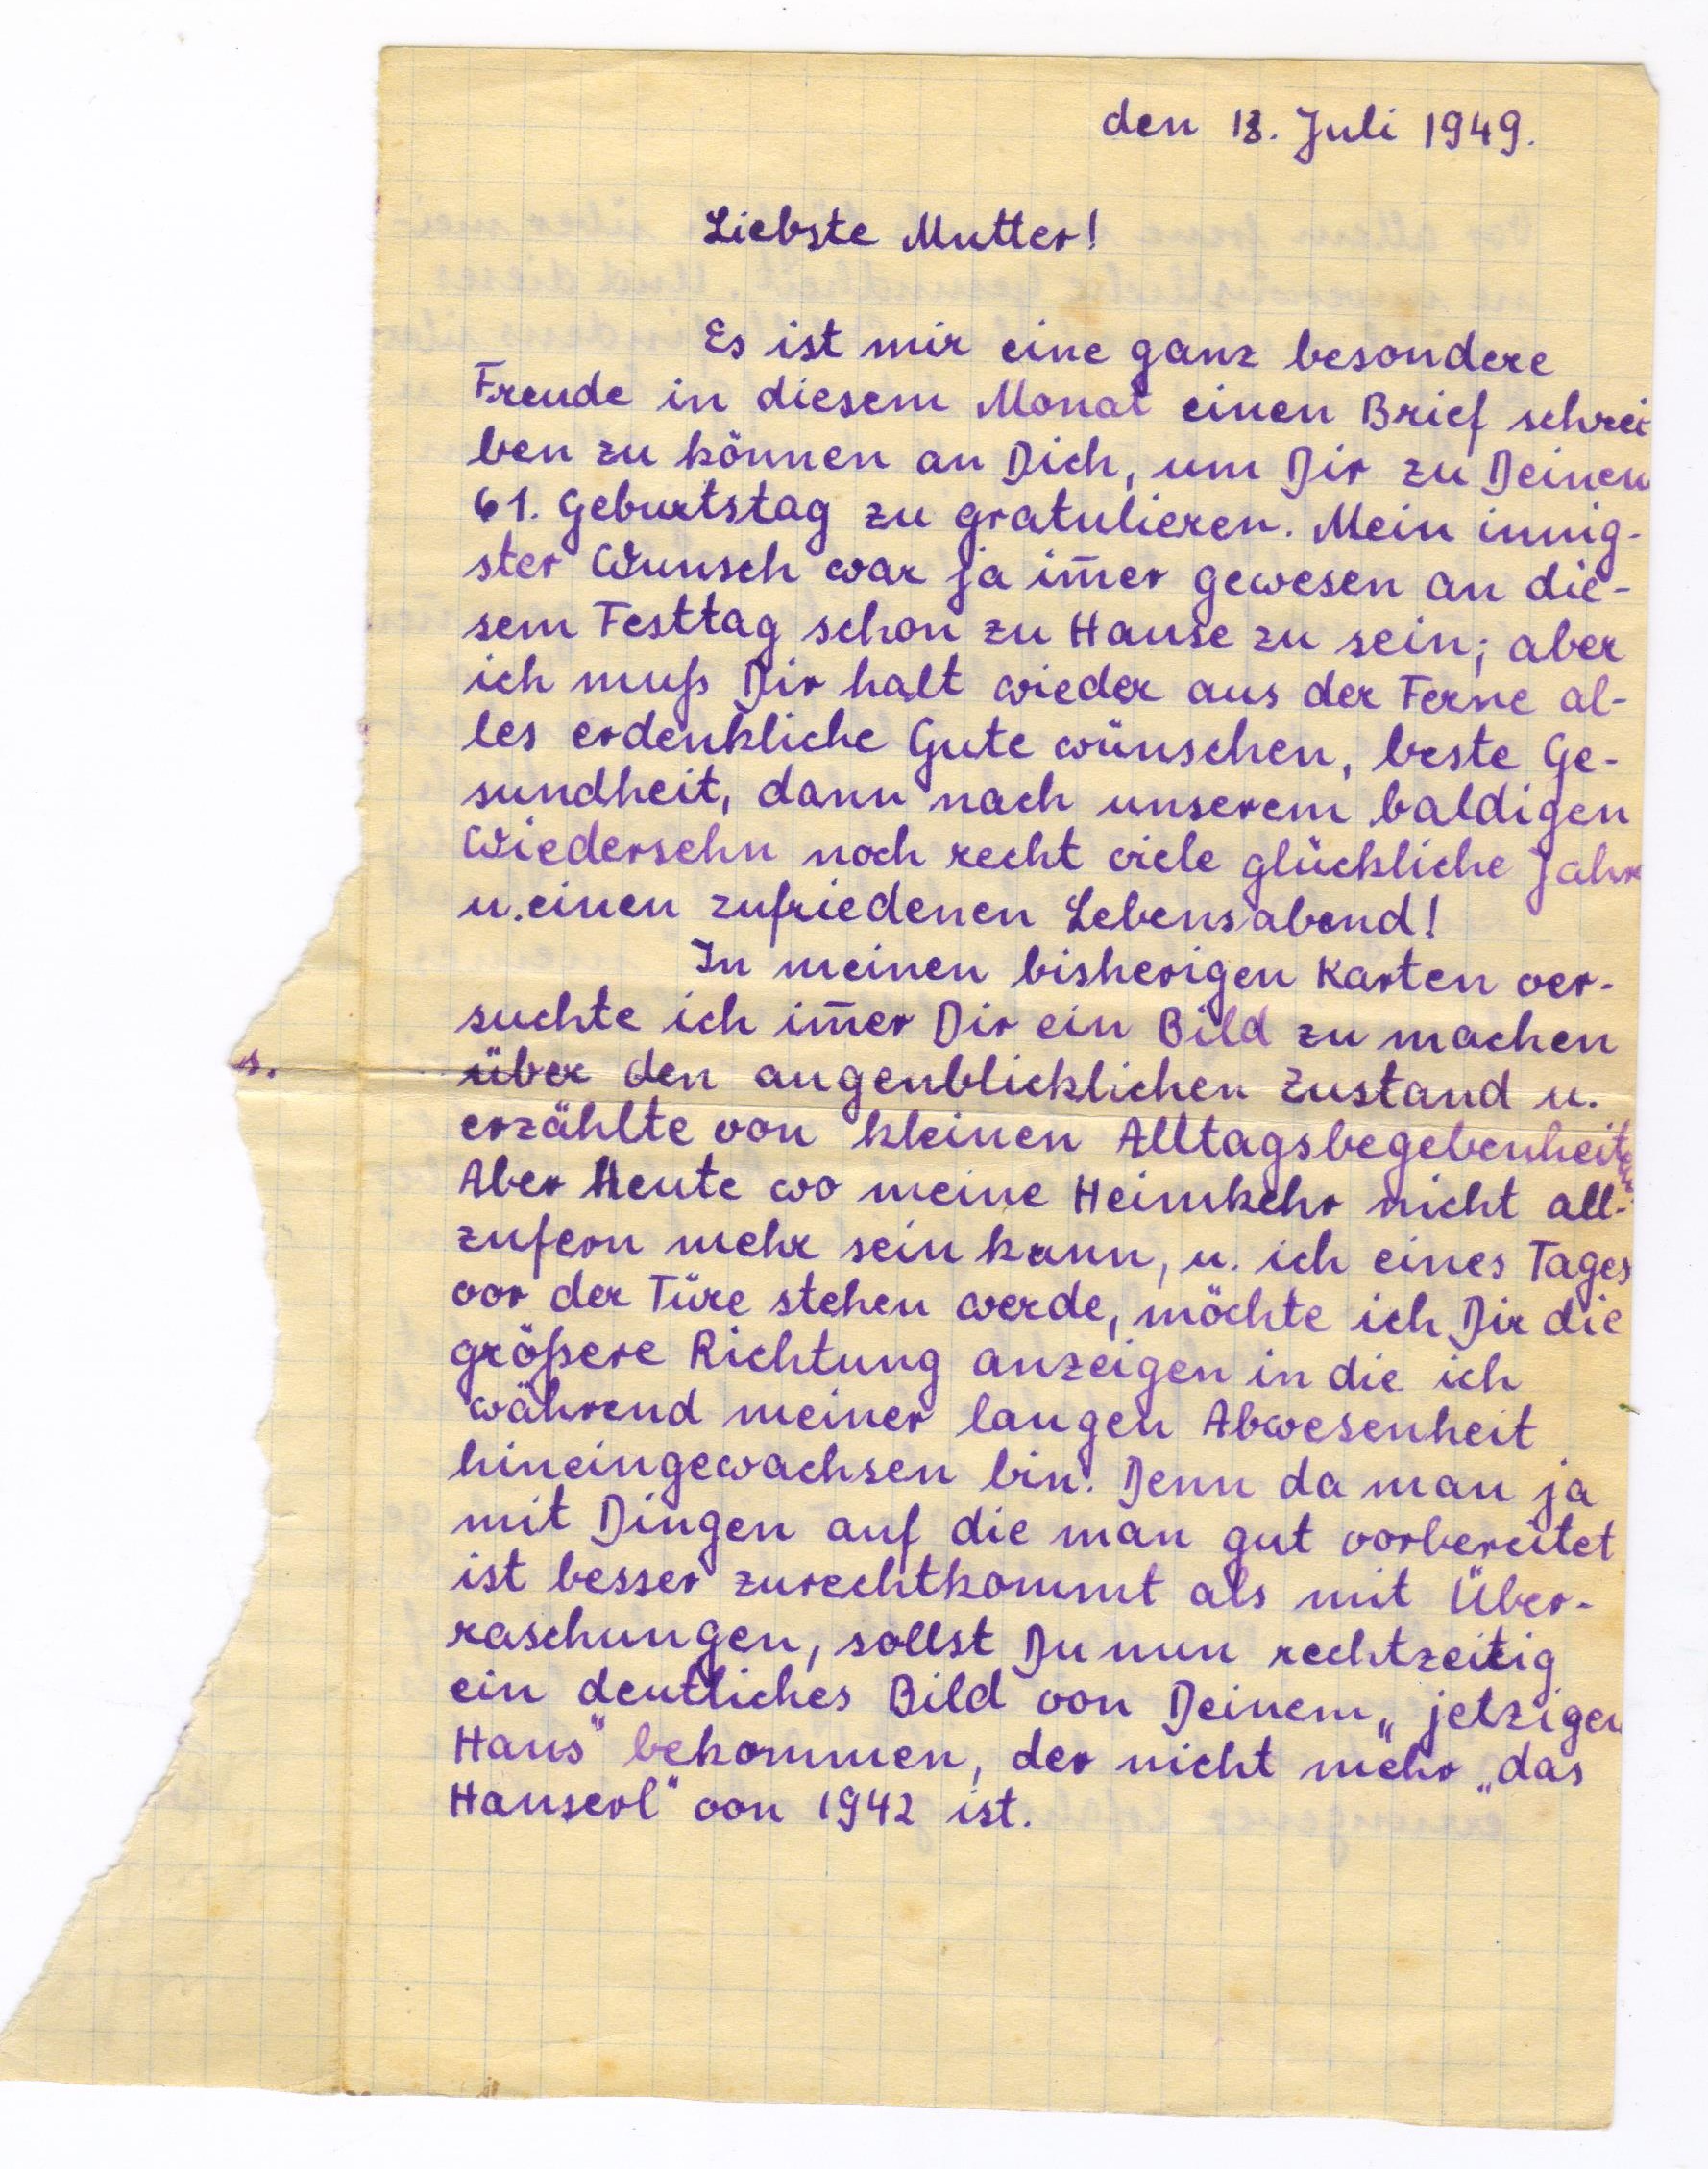 den 18. Juli 1949.
Liebste Mutter!
Es ist mir eine ganz besondere
Freude in diesem Monat einen Brief schrei
ben zu können an Dich, um Dir zu Deinem
61. Geburtstag zu gratulieren. Mein innig-
ster Wunsch war ja im̄er gewesen an die-
sem Festtag schon zu Hause zu sein; aber
ich muß Dir halt wieder aus der Ferne al-
les erdenkliche Gute wünschen, beste Ge-
sundheit, dann nach unserem baldigen
Wiedersehn noch recht viele glückliche Jahre
u. einen zufriedenen Lebensabend!
In meinen bisherigen Karten ver-
suchte ich im̄er Dir ein Bild zu machen
über den augenblicklichen Zustand u.
erzählte von kleinen Alltagsbegebenheiten.
Aber Heute wo meine Heimkehr nicht all-
zufern mehr sein kann, u. ich eines Tages
vor der Türe stehen werde, möchte ich Dir die
größere Richtung anzeigen in die ich
während meiner langen Abwesenheit
hineingewachsen bin. Denn da man ja
mit Dingen auf die man gut vorbereitet
ist besser zurechtkommt als mit Über-
raschungen, sollst Du nun rechtzeitig
ein deutliches Bild von Deinem „jetzigen
Hans" bekommen, der nicht mehr „das
Hanserl" von 1942 ist.
s.